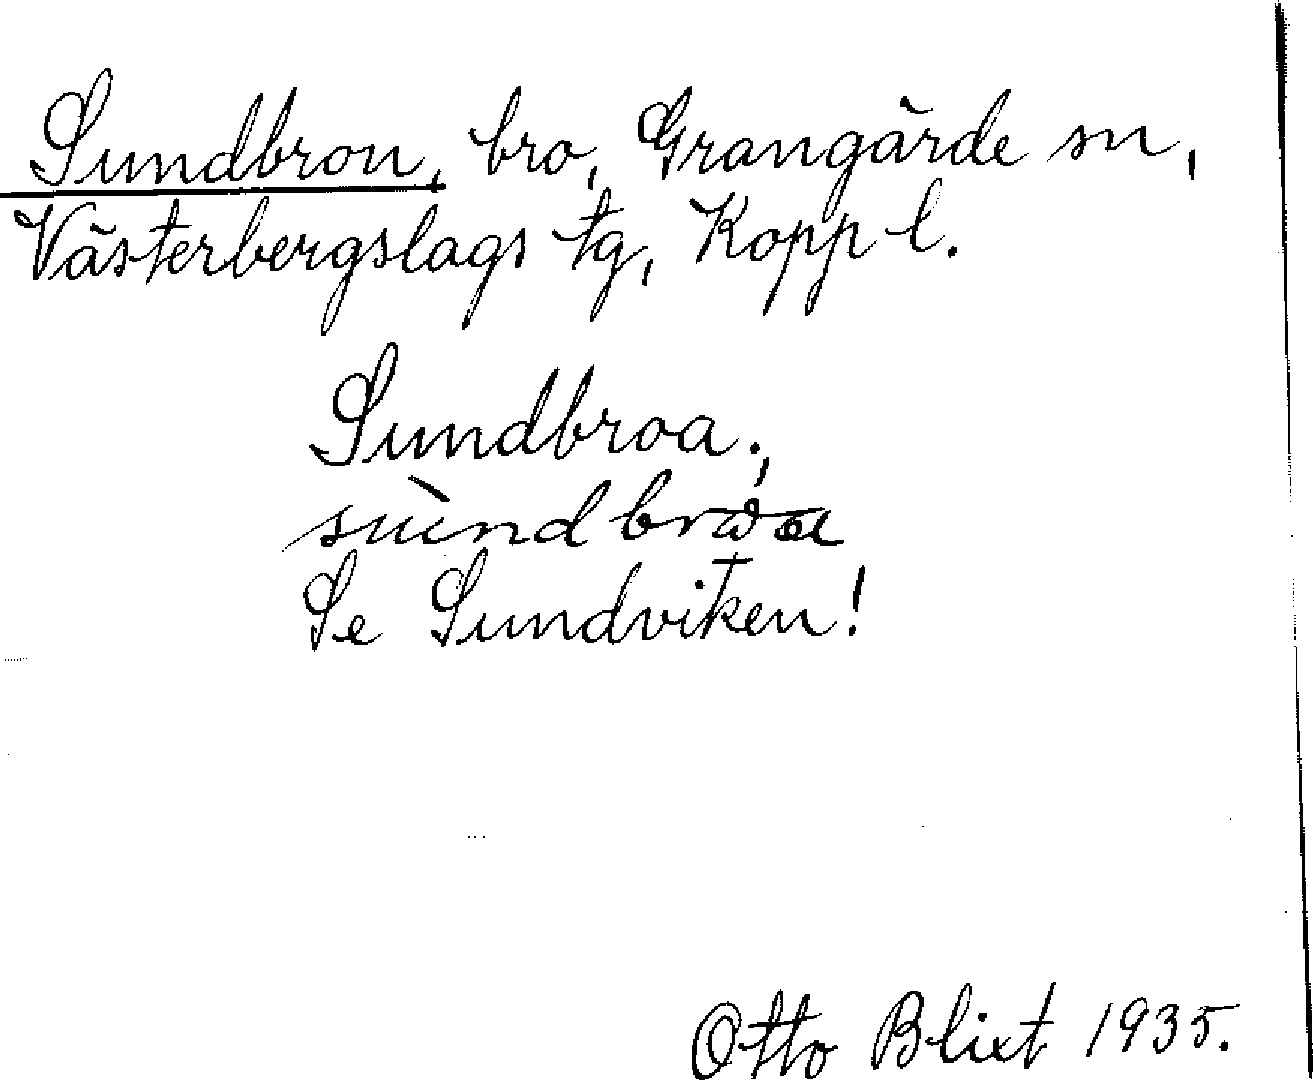 Sundbron, bro, Grangärde sn,
Västerbergslags tg, Kopp l.
Sundbroa.,
sùndbrωa
Se Sundviken!
Otto Blixt 1935.